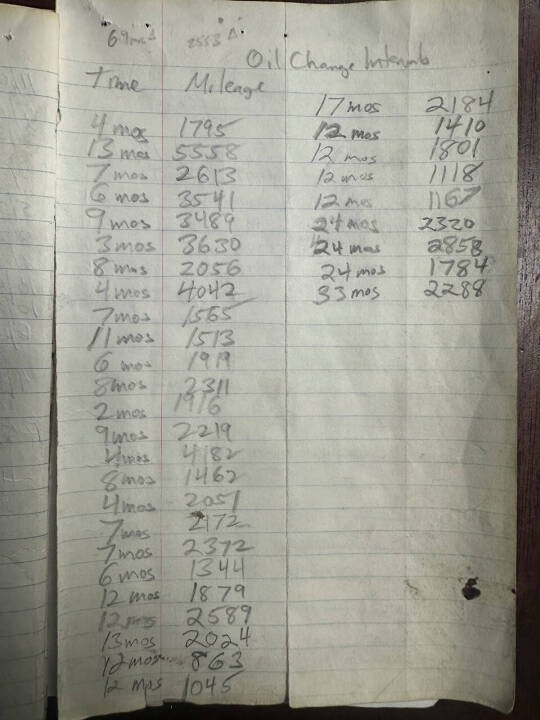 69mos Δ 2553 Δ
Oil Change Intervals
Time Mileage
4 mos 1795
13 mos 5558
7 mos 2613
6 mos 3541
9 mos 3489
3 mos 3630
8 mos 2056
4 mos 4042
7 mos 1565
11 mos 1513
6 mos 1919
8 mos 2311
2 mos 1916
9 mos 2219
4 mos 4182
8 mos 1462
4 mos 2051
7 mos 2172
7 mos 2372
6 mos 1344
12 mos 1879
12 mos 2589
13 mos 2024
12 mos 863
12 mos 1045
17 mos 2184
12 mos 1410
12 mos 1801
12 mos 1118
12 mos 1167
24 mos 2320
24 mos 2858
24 mos 1784
33 mos 2288